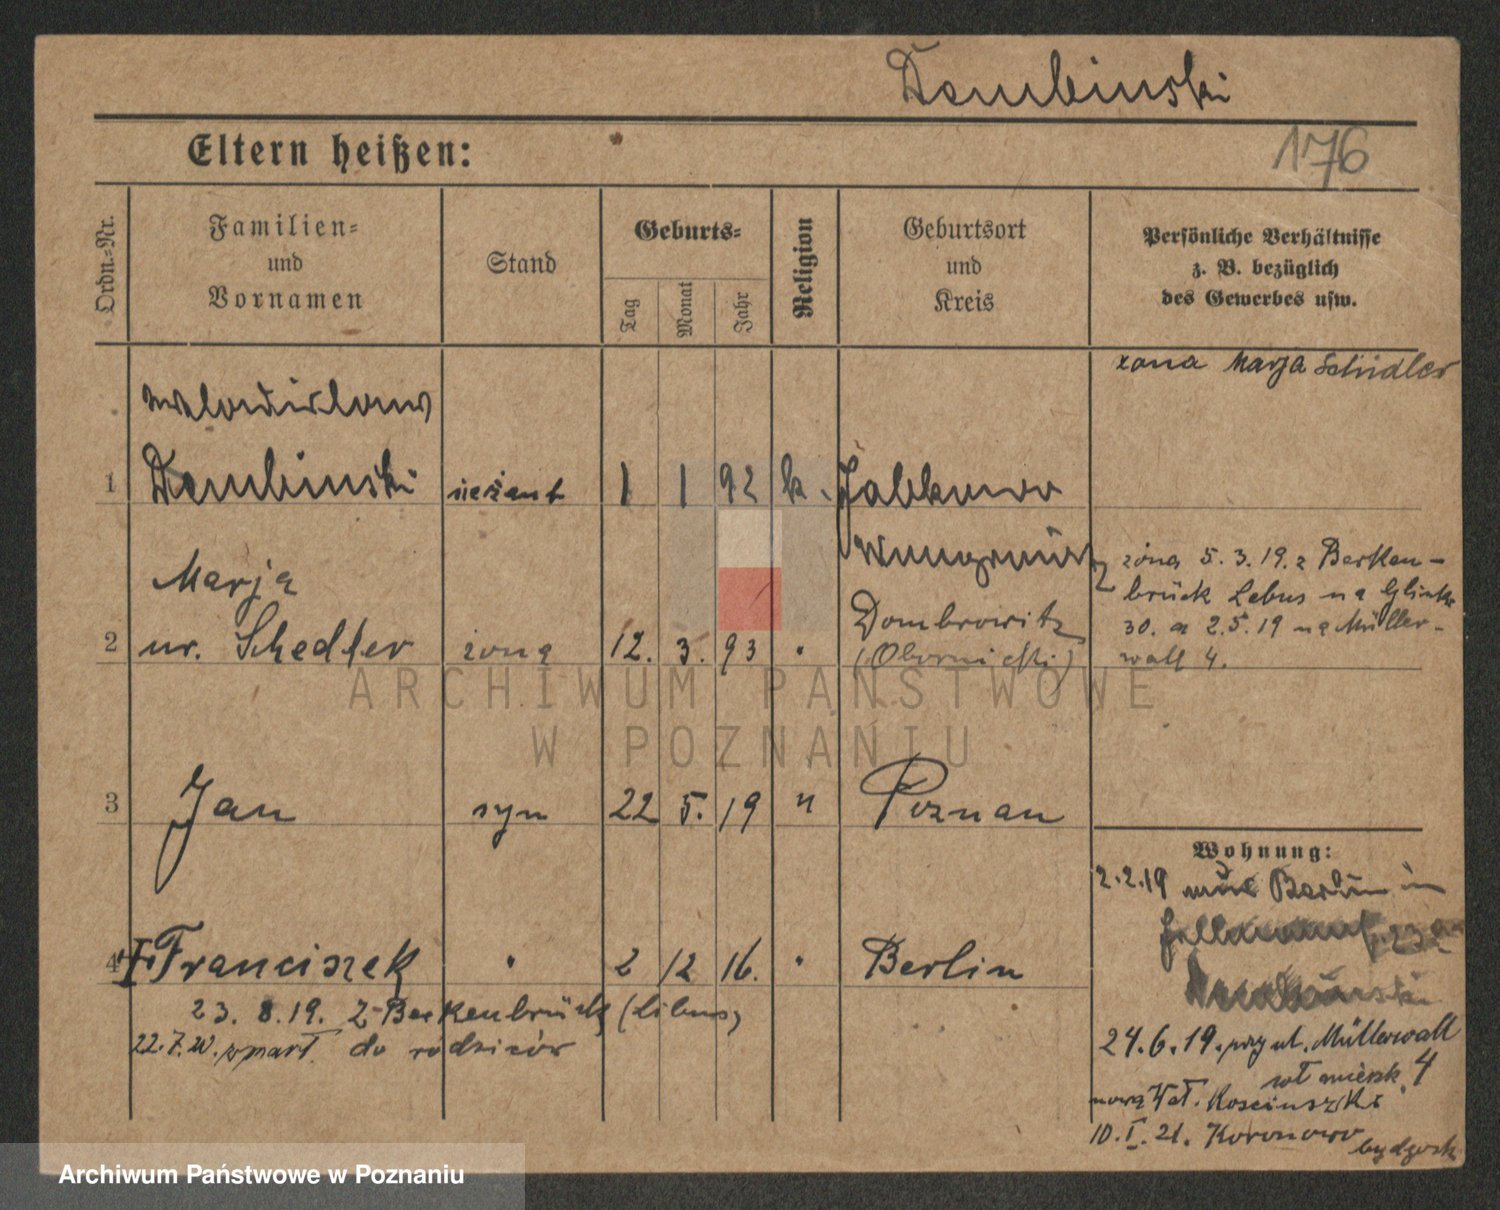 Dembinski
176
Eltern heißen:
Ordn.-Nr.
Familien-
und
Vornamen
Stand
Geburts-
Tag
Monat
Jahr
Religion
Geburtsort
und
Kreis
Persönliche Verhältnisse
z. B. bezüglich
des Gewerbes usw.
żona Marja Schidler
Wladislaus
1 Dembinski sierżant 1 1 92 k. Jabkowo
Wongrowitz
Marja
2 ur. Schedler żona 12. 3. 93 " Dombrowitz
(Obornicki)
żona 5.3.19. z Berken-
brück Lebus na Glinki
30. a 2.5.19 na Müller-
wall 4.
3 Jan syn 22 5. 19 " Poznan
4 Franciszek " 2 12 16. " Berlin
23. 8. 19. z Berkenbrück (Libus)
22.7.20. zmarł do rodziców
Wohnung:
2.2.19 aus Berlin in
24.6.19. przy ul. Müllerwall
4
Wał. Kosciuszki
10.I.21. Koronowo
bydgosk
ARCHIWUM PAŃSTWOWE
W POZNANIU
Archiwum Państwowe w Poznaniu